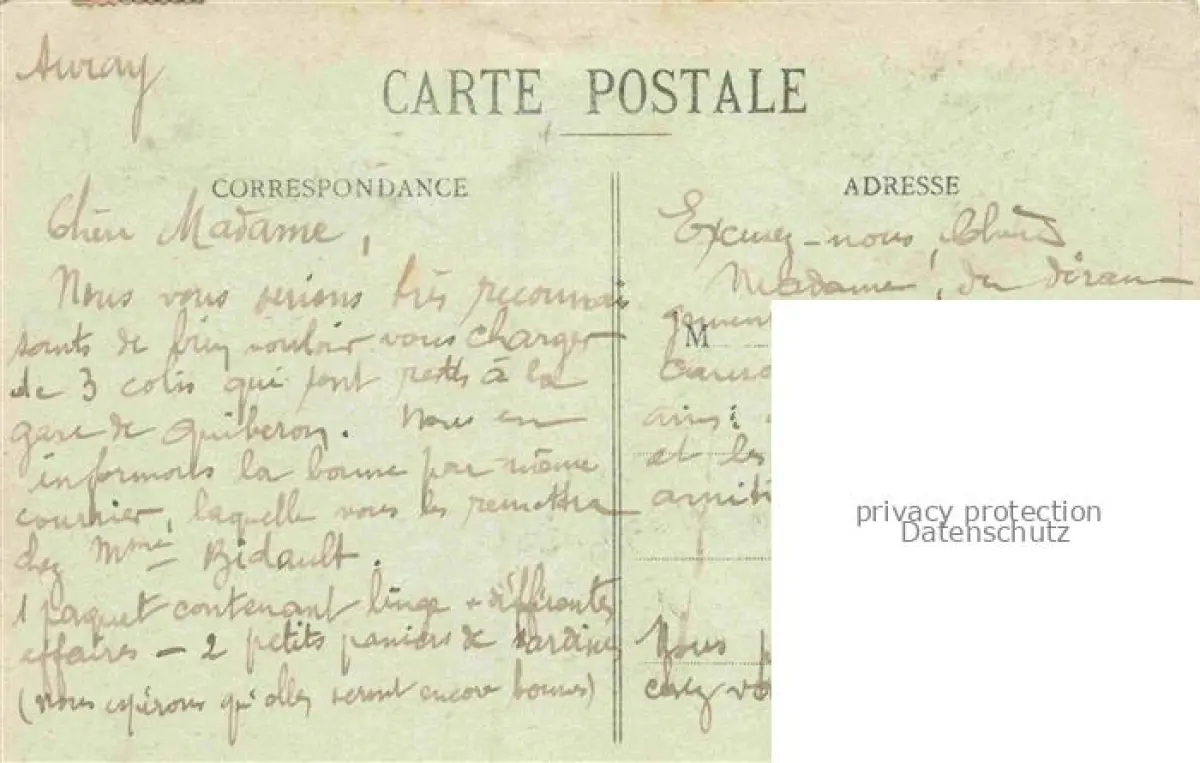 Auray
CARTE POSTALE
CORRESPONDANCE
Chère Madame,
Nous vous serions très reconnais
sants de bien vouloir vous charger
de 3 colis qui sont restés à la
gare de Quiberon. Nous en
informons la bonne par même
courrier, laquelle vous les remettra
chez Mme Bidault.
1 paquet contenant linge + différentes
affaires - 2 petits paniers de sardines
(nous espérons qu'elles seront encore bonnes)
ADRESSE
Excusez-nous, Chère
Madame, du déran-
gement
M
ainsi
et les
amiti
Nous
chez vo
privacy protection
Datenschutz